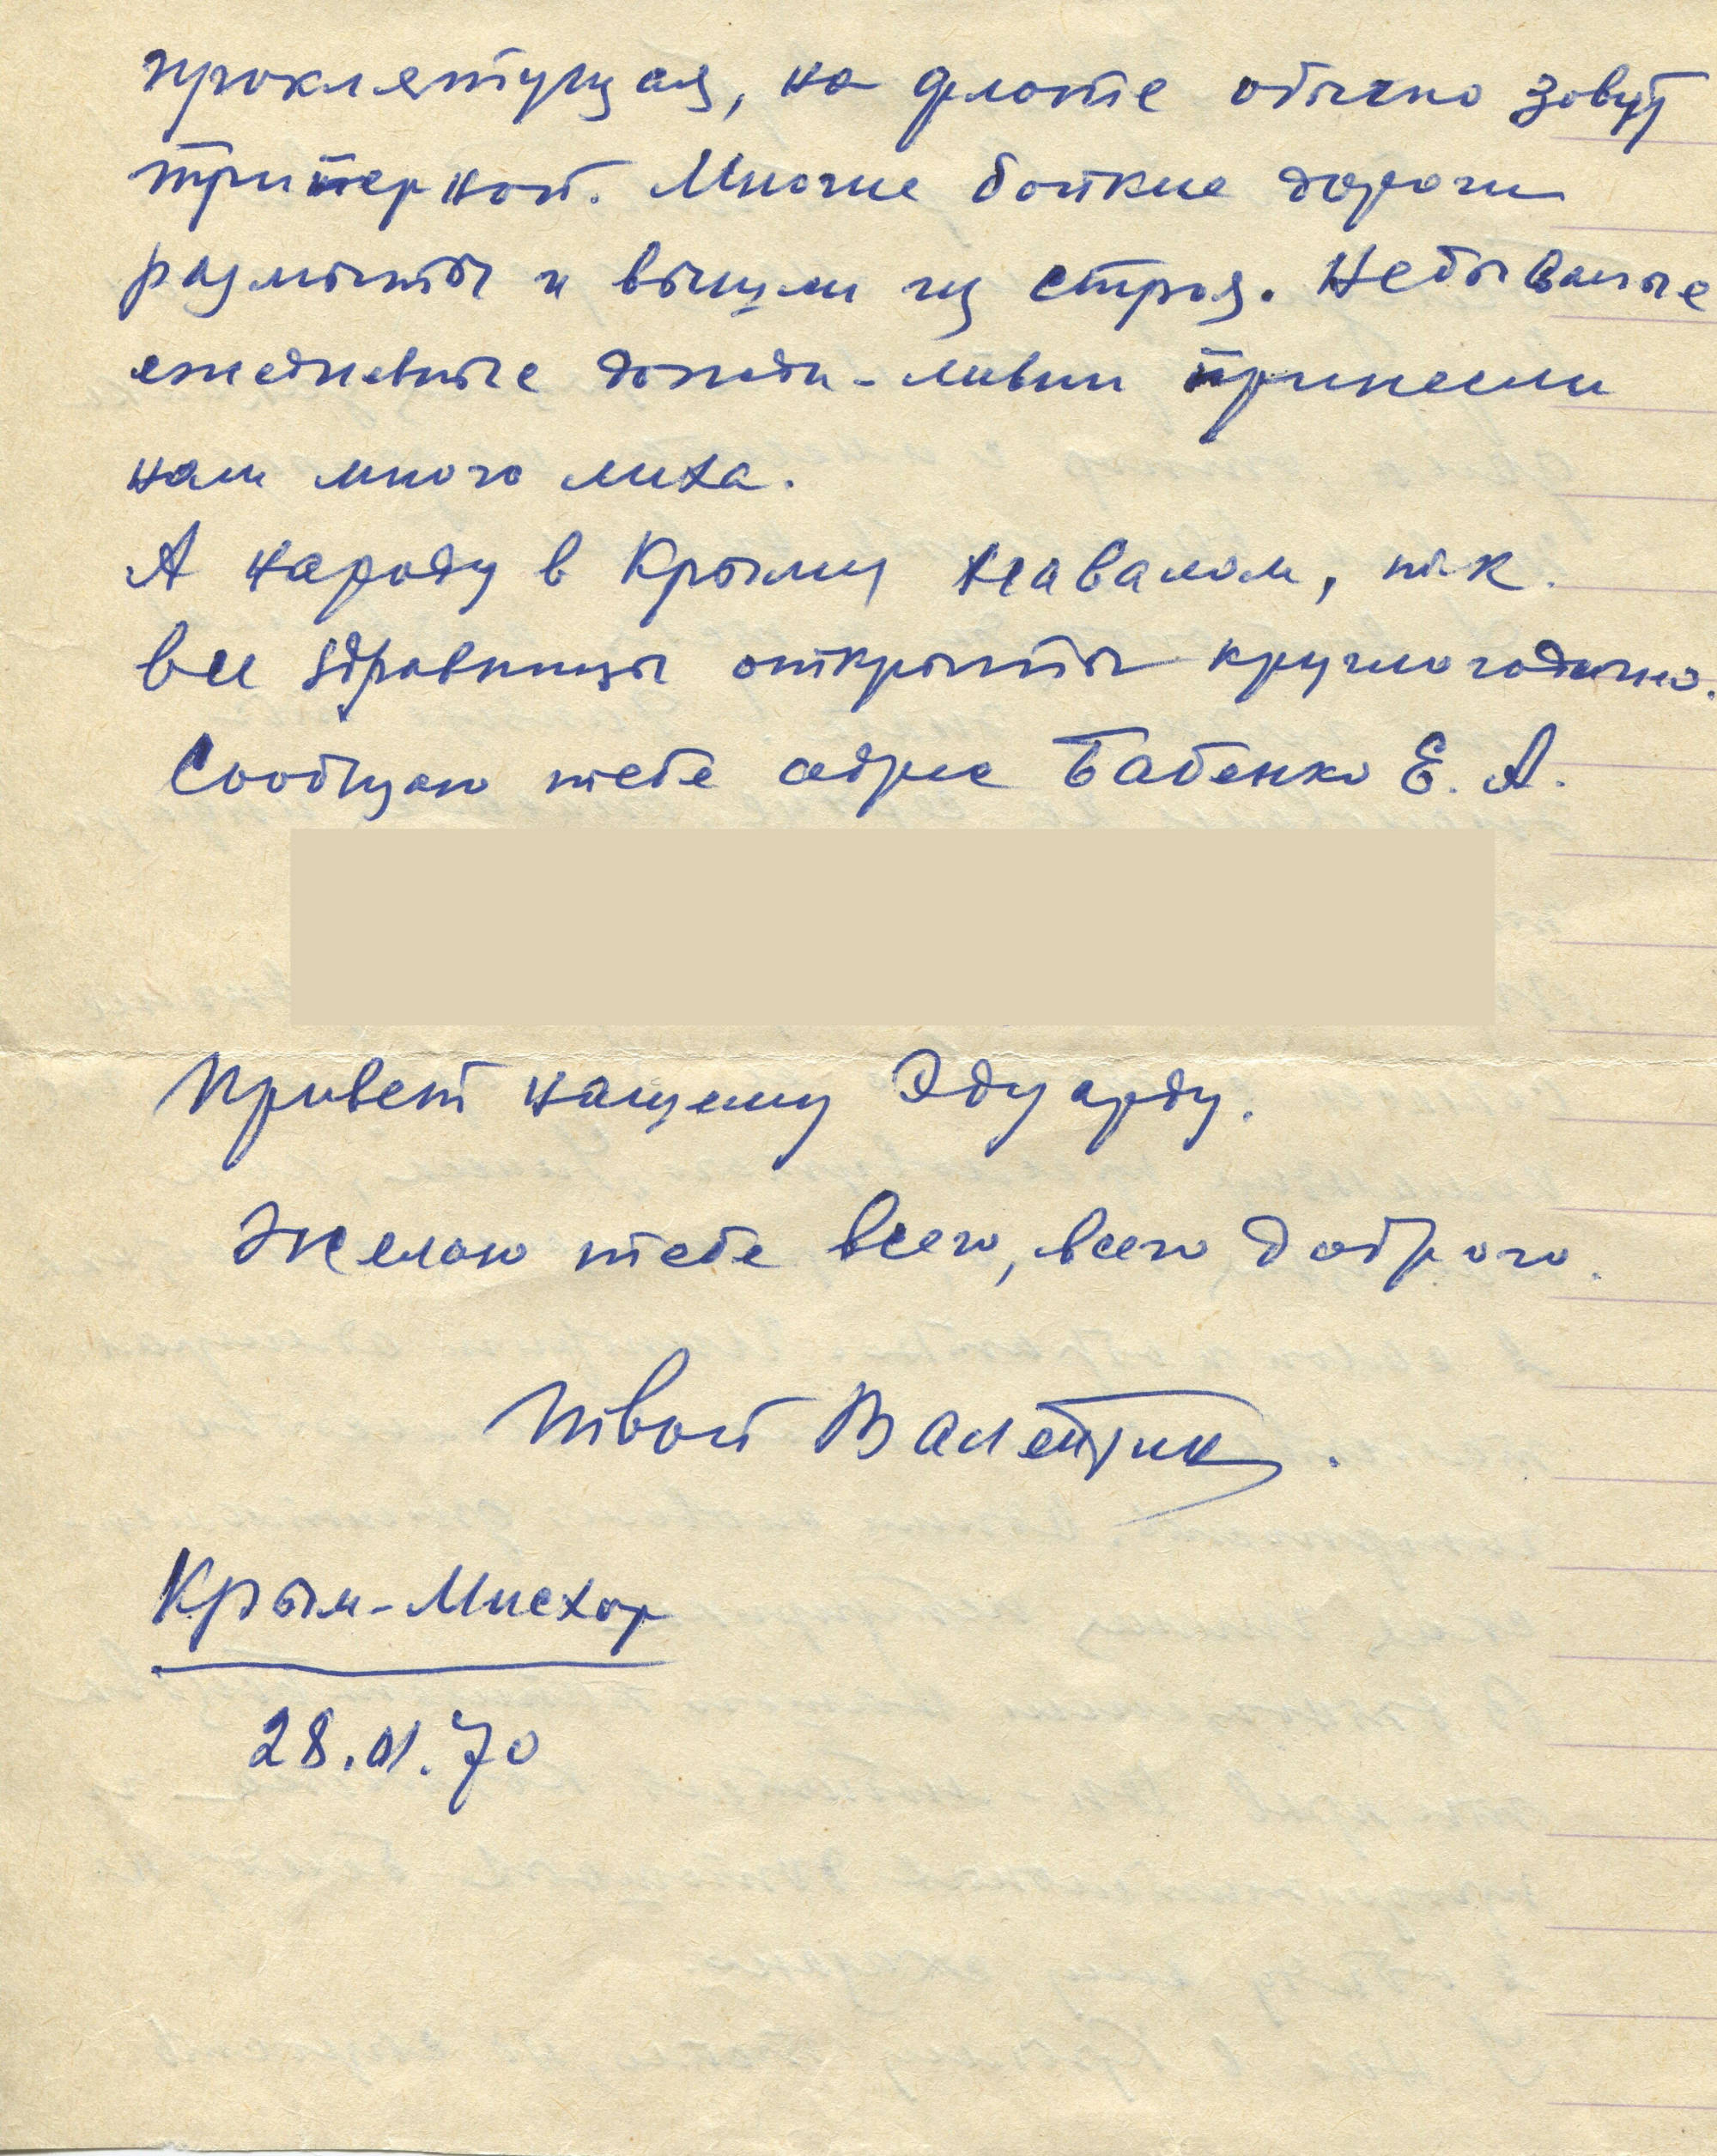 проклятущая, на флоте обычно зовут
триперной. Многие бойкие дороги
размыты и вышли из строя. Небывалые
ежедневные дожди-ливни принесли
нам много лиха.
А народу в Крыму навалом, т.к.
все здравницы открыты круглогодично.
Сообщаю тебе адрес Бабенко Е. А.
Привет нашему Эдуарду.
Желаю тебе всего, всего доброго.
Твой Валентин.
Крым-Мисхор
28.01.70